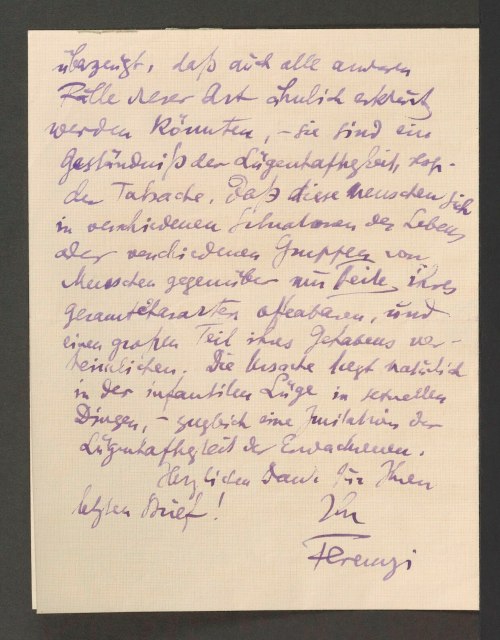 überzeugt, daß auch alle anderen
Fälle dieser Art ähnlich erklärt
werden könnten, – sie sind ein
Geständniß der Lügenhaftigkeit, resp.
der Tatsache, daß diese Menschen sich
in verschiedenen Situationen des Lebens
oder verschiedenen Gruppen von
Menschen gegenüber nur Teile ihres
Gesamtcharakters offenbaren, und
einen großen Teil ihres Gehabens ver-
heimlichen. Die Ursache liegt natürlich
in der infantilen Lüge in sexuellen
Dingen, – zugleich eine Imitation der
Lügenhaftigkeit der Erwachsenen.
Herzlichen Dank für Ihren
letzten Brief!
Ihr
Ferenczi